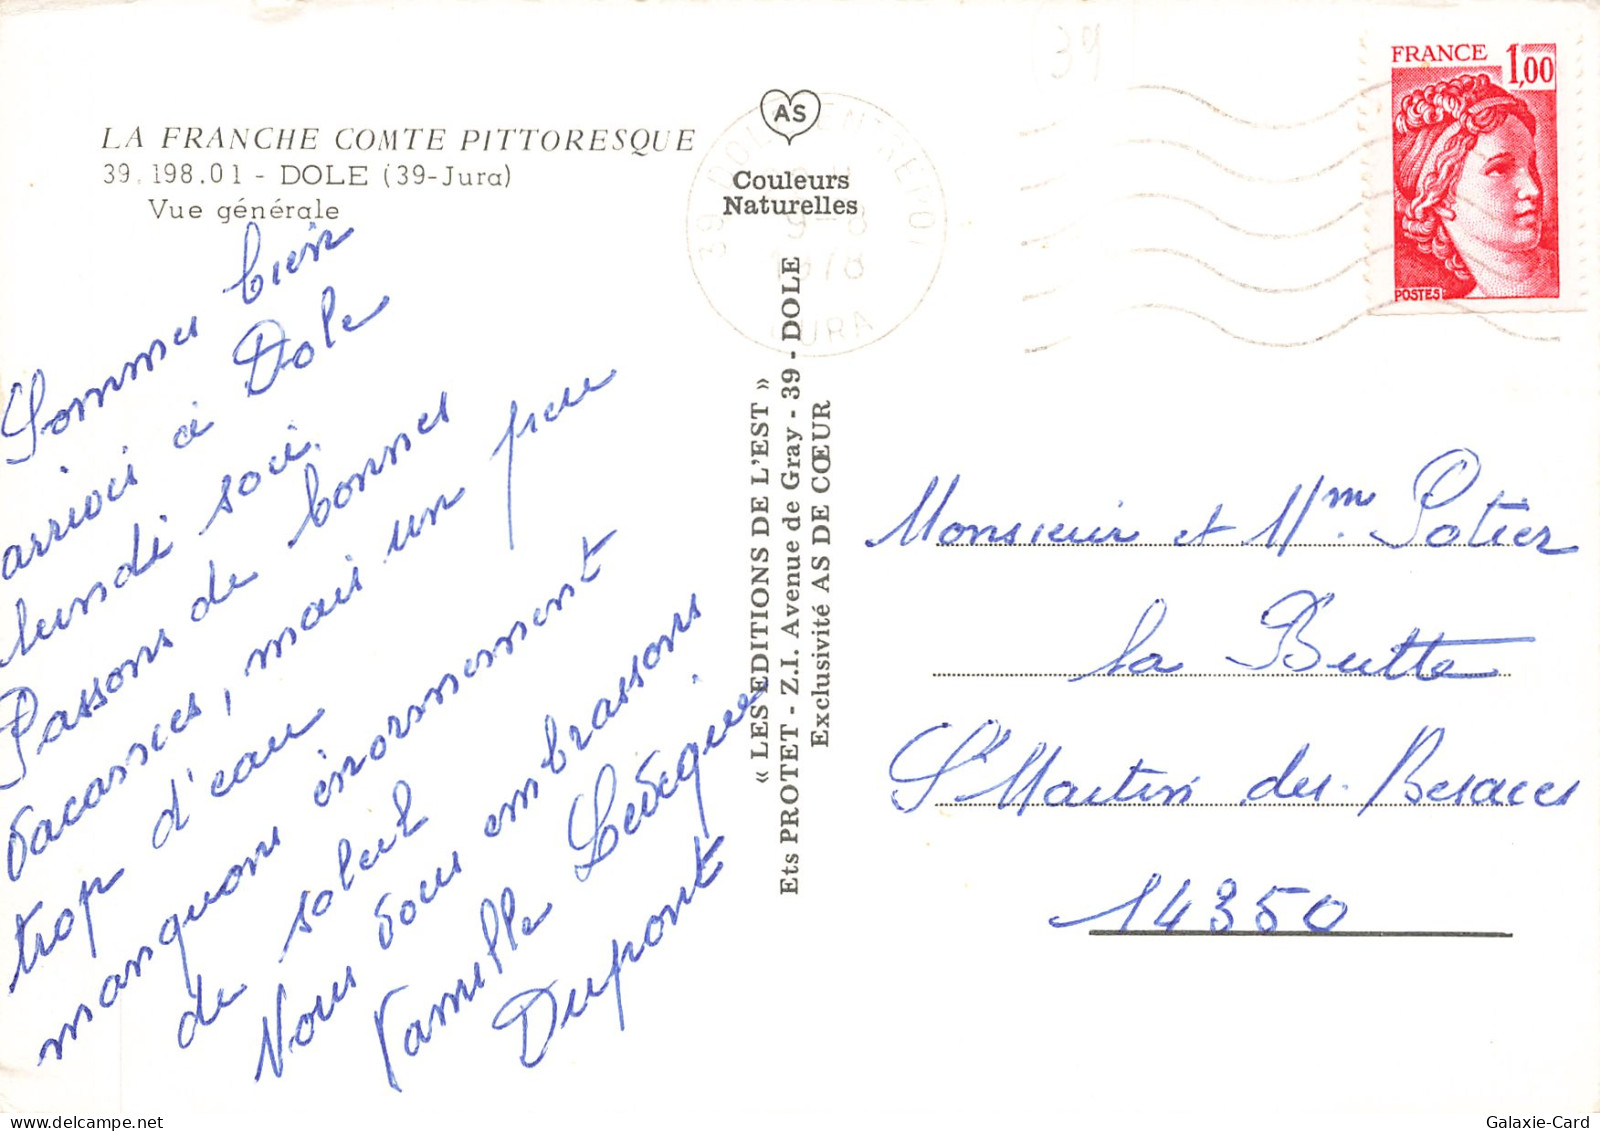 LA FRANCHE COMTE PITTORESQUE
39.198.01 - DOLE (39-Jura)
Vue générale
Sommes bien
arrivés à Dole
lundi soir.
Passons de bonnes
vacances, mais un peu
trop d'eau
manquons énormément
de soleil
Nous vous embrassons
Famille Levêque
Dupont
AS
Couleurs
Naturelles
« LES EDITIONS DE L'EST »
Ets PROTET - Z.I. Avenue de Gray - 39 - DOLE
Exclusivité AS DE CŒUR
39
39 DOLE ENTREPOT
9-8
1978
JURA
FRANCE 1,00
POSTES
Monsieur et Mme Potier
la Butte
St Martin des Besaces
14350
Galaxie-Card